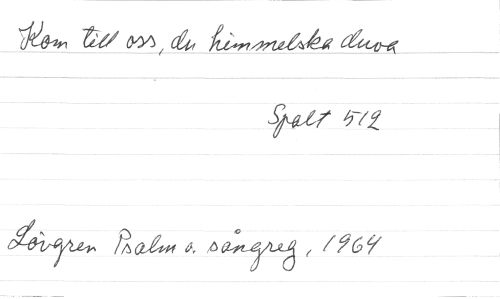 Kom till oss, du himmelska duva
Spalt 512
Lövgren Psalm o. sångreg, 1964